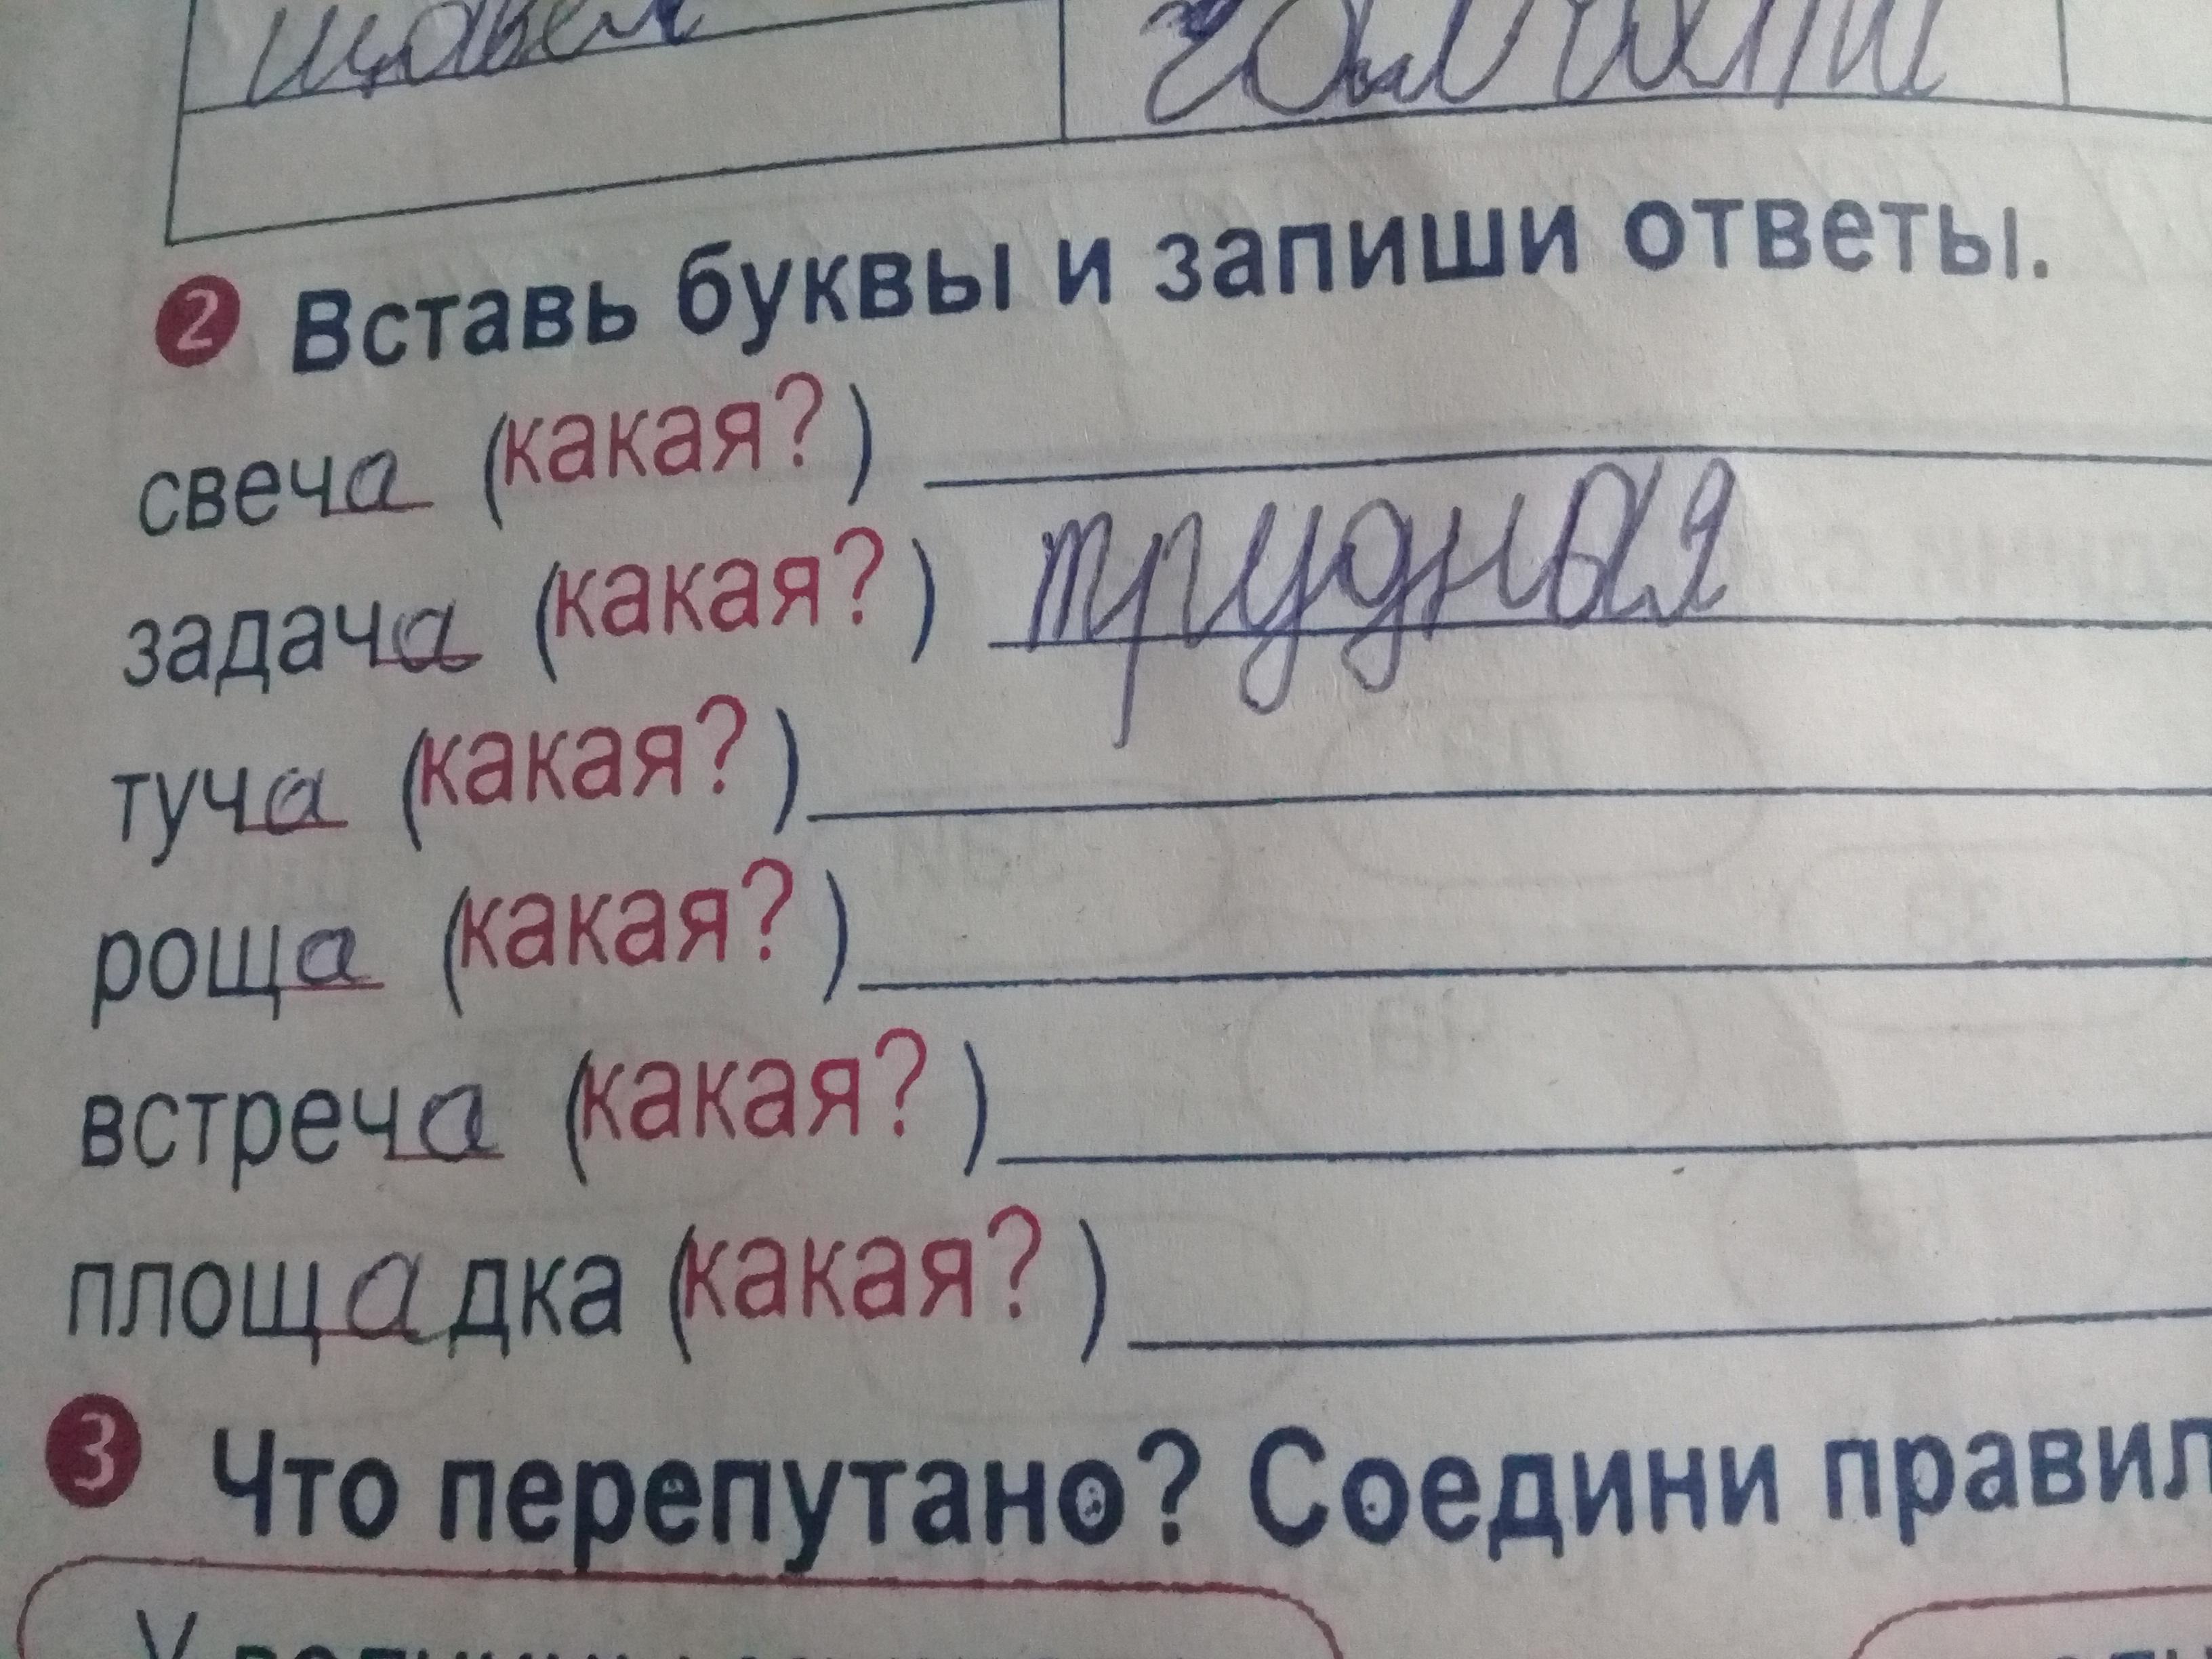 щавель
❷ Вставь буквы и запиши ответы.
свеча (какая?)
задача (какая?) трудная
туча (какая?)
роща (какая?)
встреча (какая?)
площадка (какая?)
❸ Что перепутано? Соедини правил